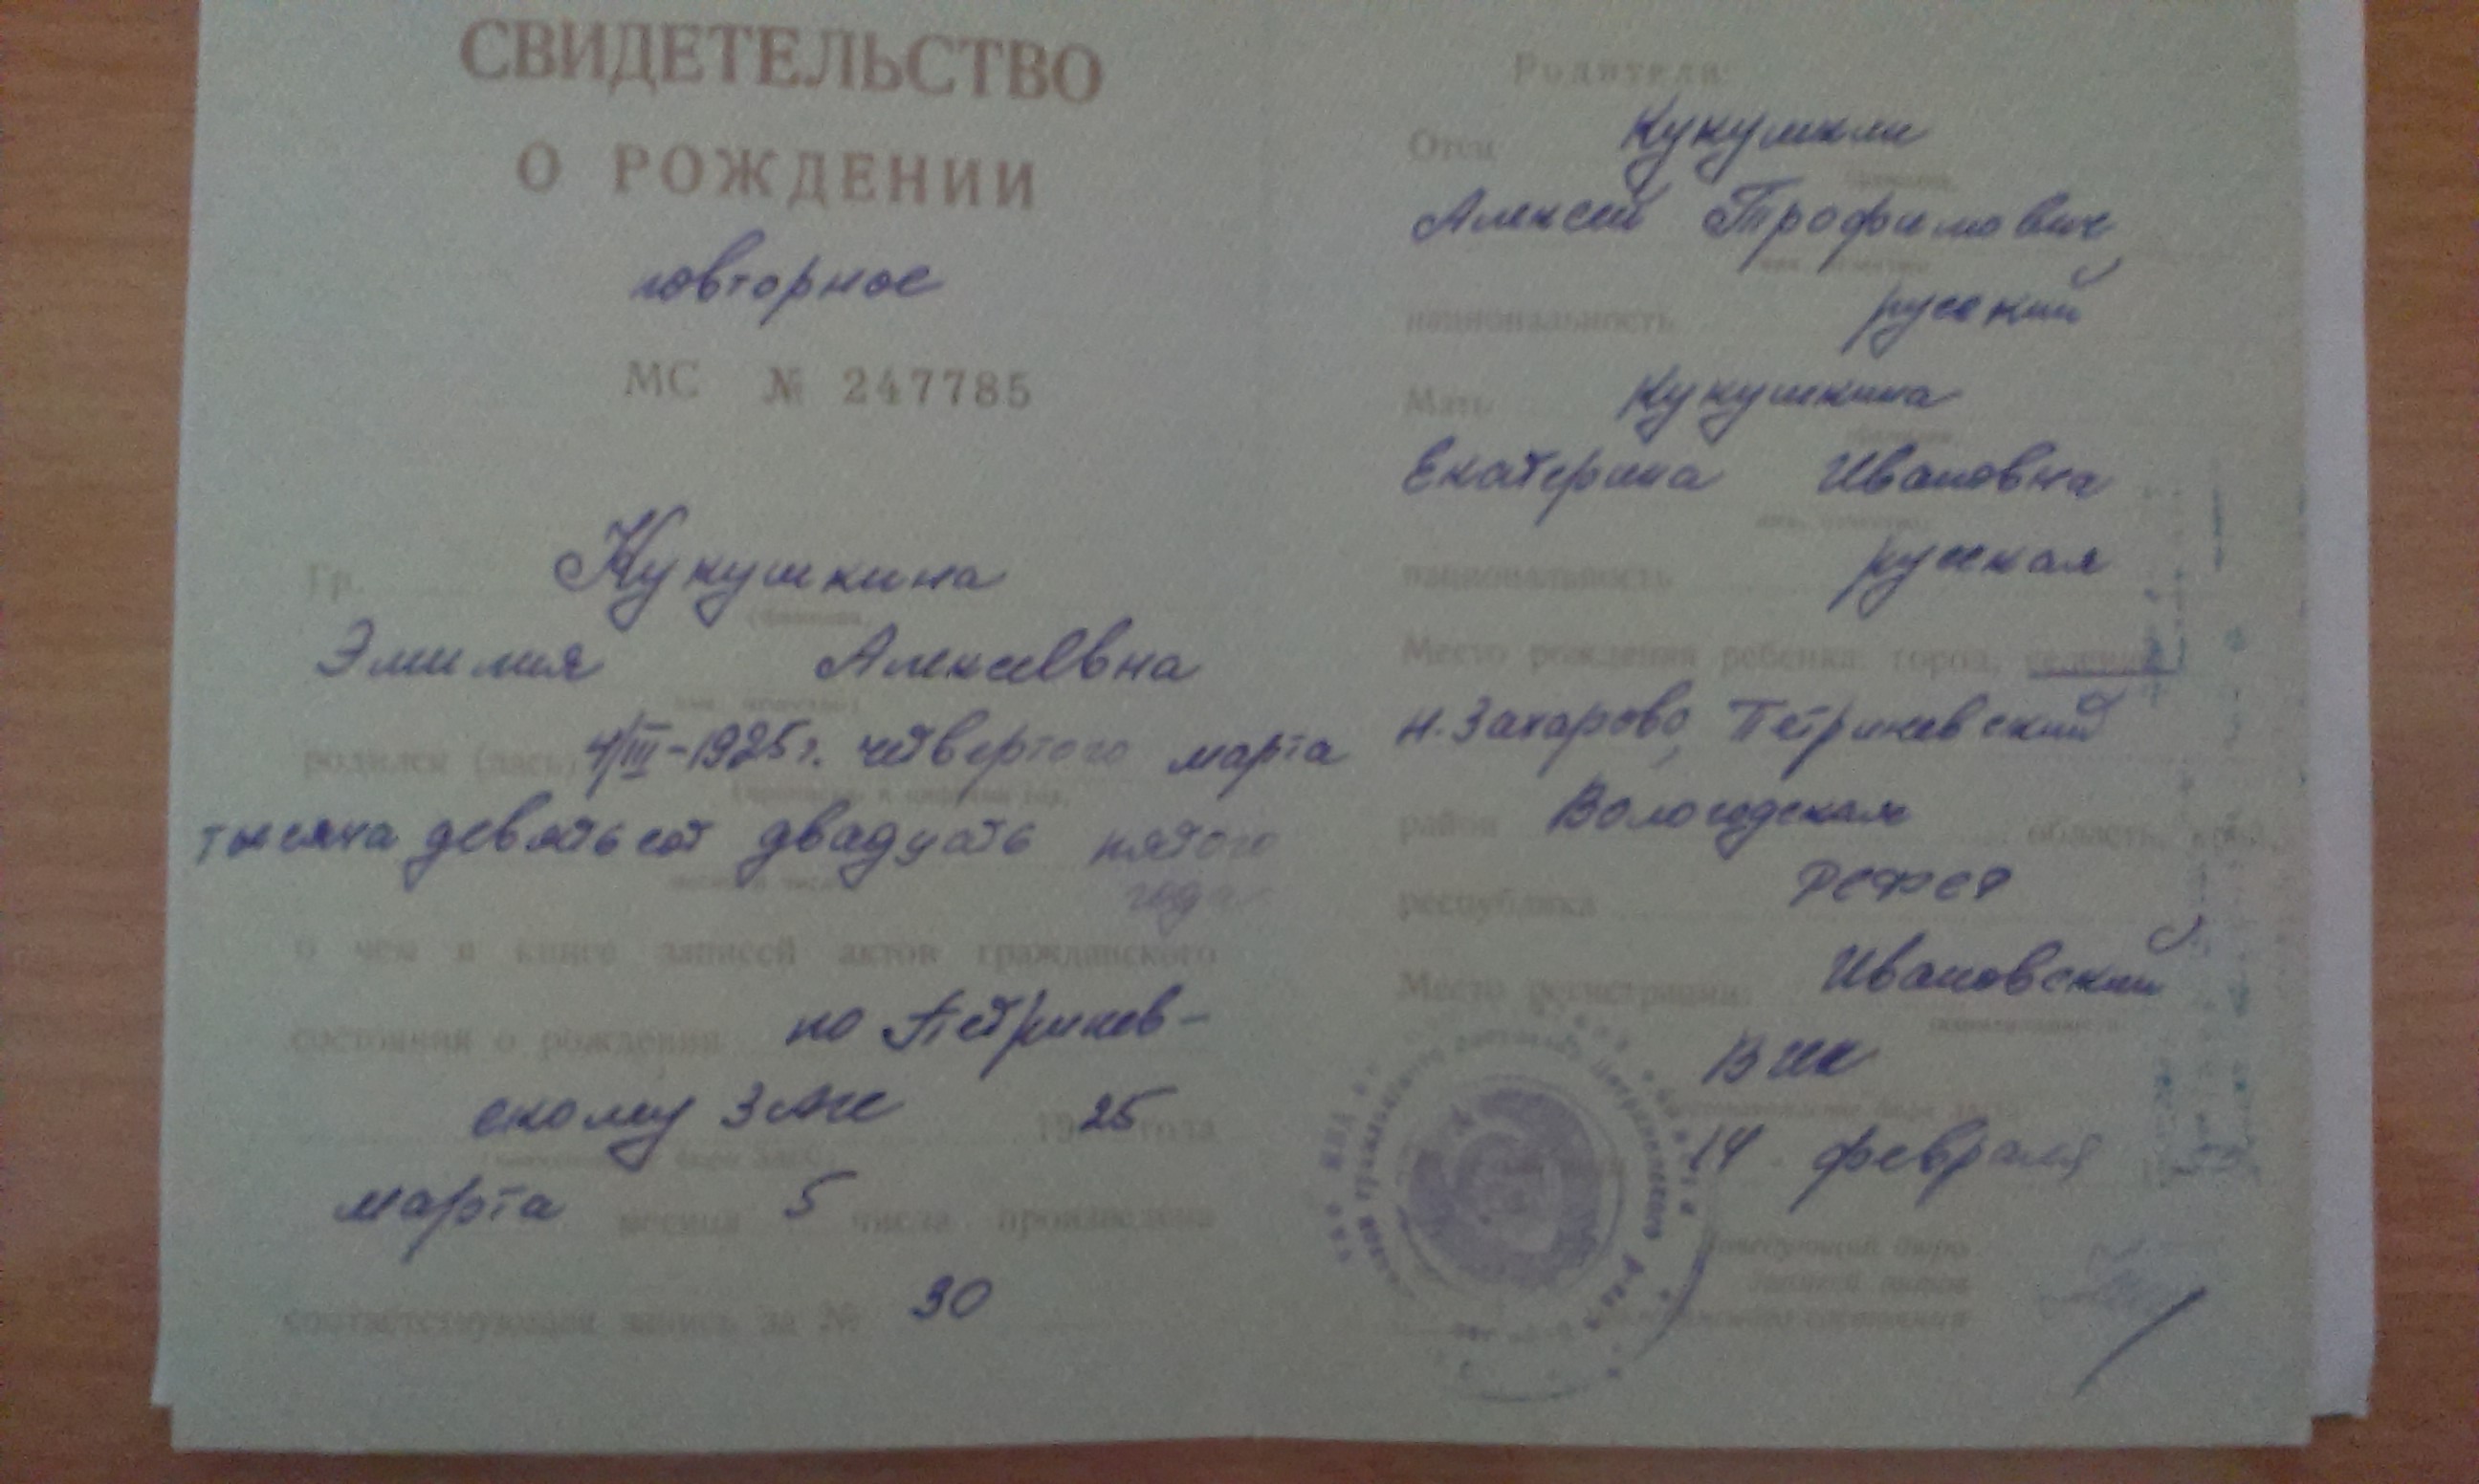 СВИДЕТЕЛЬСТВО
О РОЖДЕНИИ
повторное
МС № 247785
Гр. Кукушкина
Эмилия Алексеевна
родился (лась) 4/III-1925 г. четвертого марта
тысяча девятьсот двадцать пятого
года
о чем в книге записей актов гражданского
состояния о рождении по Петринев-
скому ЗАГС 1925 года
марта месяца 5 числа произведена
соответствующая запись за № 30
Родители:
Отец Кукушкин
Алексей Трофимович
национальность русский
Мать Кукушкина
Екатерина Ивановна
национальность русская
Место рождения ребенка: город, селение
н. Захарово, Петриневский
район Вологодская область, край,
республика РСФСР
Место регистрации Ивановский
ВИК
14 февраля
Заведующий бюро
записей актов
гражданского состояния